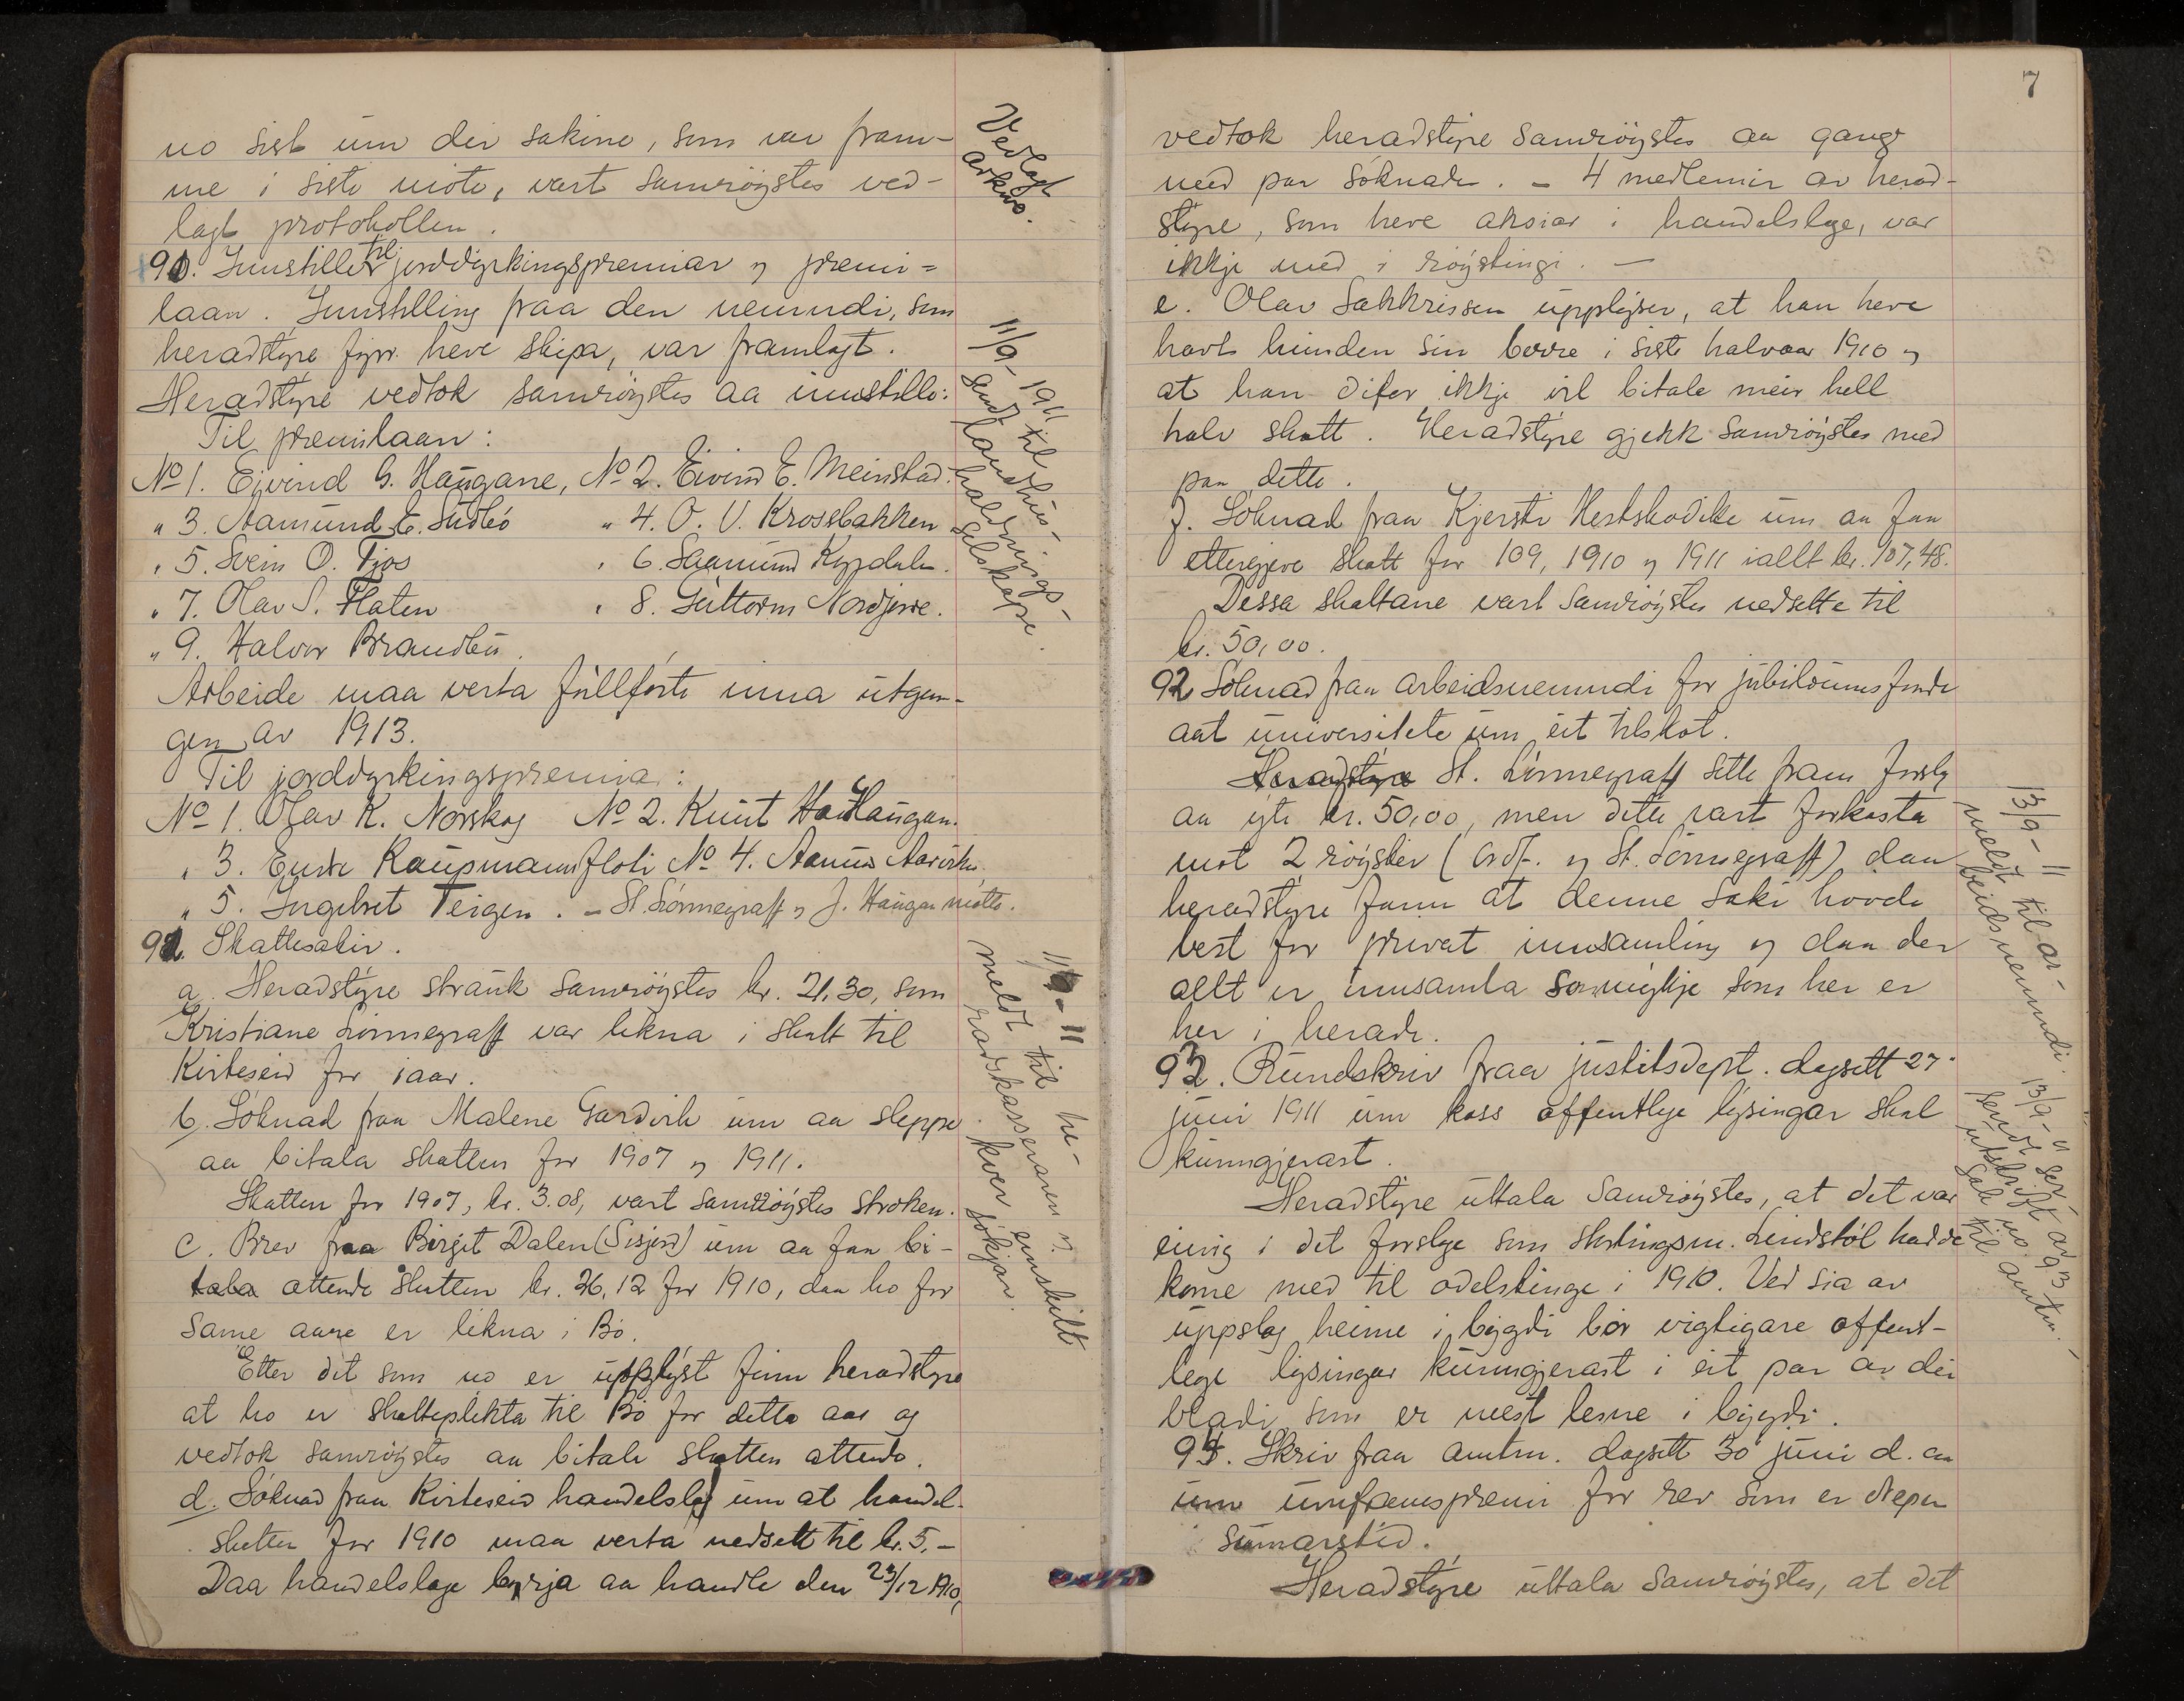 no sist um dei sakine, som var fram-
me i siste møte, vart samrøystes ved-
lagt protokollen.
90. Innstilling til jorddyrkingspremiar og premi-
laan. Innstilling fraa den nemndi, som
heradstyre fyrr heve skipa, var framlagt.
Heradstyre vedtok samrøystes aa innstille:
Til premilaan:
No 1. Ejvind G. Haugane, No 2. Eivind E. Meinstad.
" 3. Aamund E. Sudbø " 4. O. V. Krossbakken
" 5. Svein O. Tjos " 6. Saamund Kypdalen.
" 7. Olav S. Flaten " 8. Guttorm Nordjore.
" 9. Halvor Brandbu.
Arbeide maa verta fullførte inna utgan-
gen av 1913.
Til jorddyrkingspremia:
No 1. Olav K. Norskog No 2. Knut Haugan.
" 3. Enke Kaupmannsfloti No 4. Aanund Aarvik.
" 5. Ingebret Teigen. - St. Lønnegraff og J. Haugan møtte.
91. Skattesakir.
a. Heradstyre strauk samrøystes kr. 21,30, som
Kristiane Lønnegraff var likna i skatt til
Kviteseid for iaar.
b. Søknad fraa Malene Gardvik um aa sleppe
aa bitala skatten for 1907 og 1911.
Skatten for 1907, kr. 3.08, vart samrøystes stroken.
c. Brev fraa Birgit Dalen (Sisjord) um aa faa bi-
tala attende skatten kr. 26,12 for 1910, daa ho for
same aare er likna i Bø.
Etter det som no er upplyst finn heradstyre
at ho er skatteplikta til Bø for detta aar og
vedtok samrøystes aa bitale skatten attende.
d. Søknad fraa Kviteseid handelslag um at handel-
skatten for 1910 maa verta nedsett til kr. 5.-
Daa handelslage byrja aa handle den 23/12 1910,
Vedlagt
arkivo.
11/9-1911
sendt til
landhus-
haldnings-
selskapi.
11/9-11
meldt til he-
radskasseraren og
kver einskilt
søkjar.
7
vedtok heradstyre samrøystes aa gange
med paa søknaden. - 4 medlemir av herad-
styre, som heve aksiar i handelslage, var
ikkje med i røystingi. -
e. Olav Sakkrissen upplyser, at han heve
havt hunden sin berre i siste halvaar 1910 og
at han difor ikkje vil bitale meir hell
halv skatt. Heradstyre gjekk samrøystes med
paa dette.
f. Søknad fraa Kjersti Hestskodike um aa faa
ettergjeve skatt for 109, 1910 og 1911 iallt kr. 107,48.
Dessa skattane vart samrøystes nedsette til
kr. 50,00.
92 Søknad fraa arbeidsnemndi for jubilæumsfonde
aat universitete um eit tilskot.
Heradstyre St. Lønnegraff sette fram forslag
aa yte kr. 50,00, men dette vart forkasta
mot 2 røyster (ordf. og St. Lønnegraff), daa
heradstyre fann at denne saki høvde
best for privat innsamling og daa der
allt er innsamla som her er
her i herade.
93. Rundskriv fraa justitsdept. dagsett 27
juni 1911 um koss offentlege lysingar skal
kunngjerast.
Heradstyre uttala samrøystes, at det var
einig i det forslage som stortingsm. Lindstøl hadde
kome med til odelstinge i 1910. Ved sia av
uppslag heime i bygdi bør vigtigare offent-
lege lysingar kunngjerast i eit par av dei
bladi som er mest lesne i bygdi.
94. Skriv fraa amtm. dagsett 30 juni d. aa
um premi for rev som er drepen
sumarstid.
Heradstyre uttala samrøystes, at det
13/9-11
meldt til ar-
beidsnemndi.
13/9-11 ser
sendt
utskrift av
sak no. 93
til amtm.